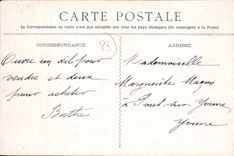 CARTE POSTALE
Le Correspondance au recto n'est pas acceptée par tous les pays étrangers (Se renseigner à la Poste)
CORRESPONDANCE
ADRESSE
83
Ouvre un œil pour
vendre et deux
pour acheter
Berthe
Mademoiselle
Marguerite
à Pont-sur-Yonne
Yonne